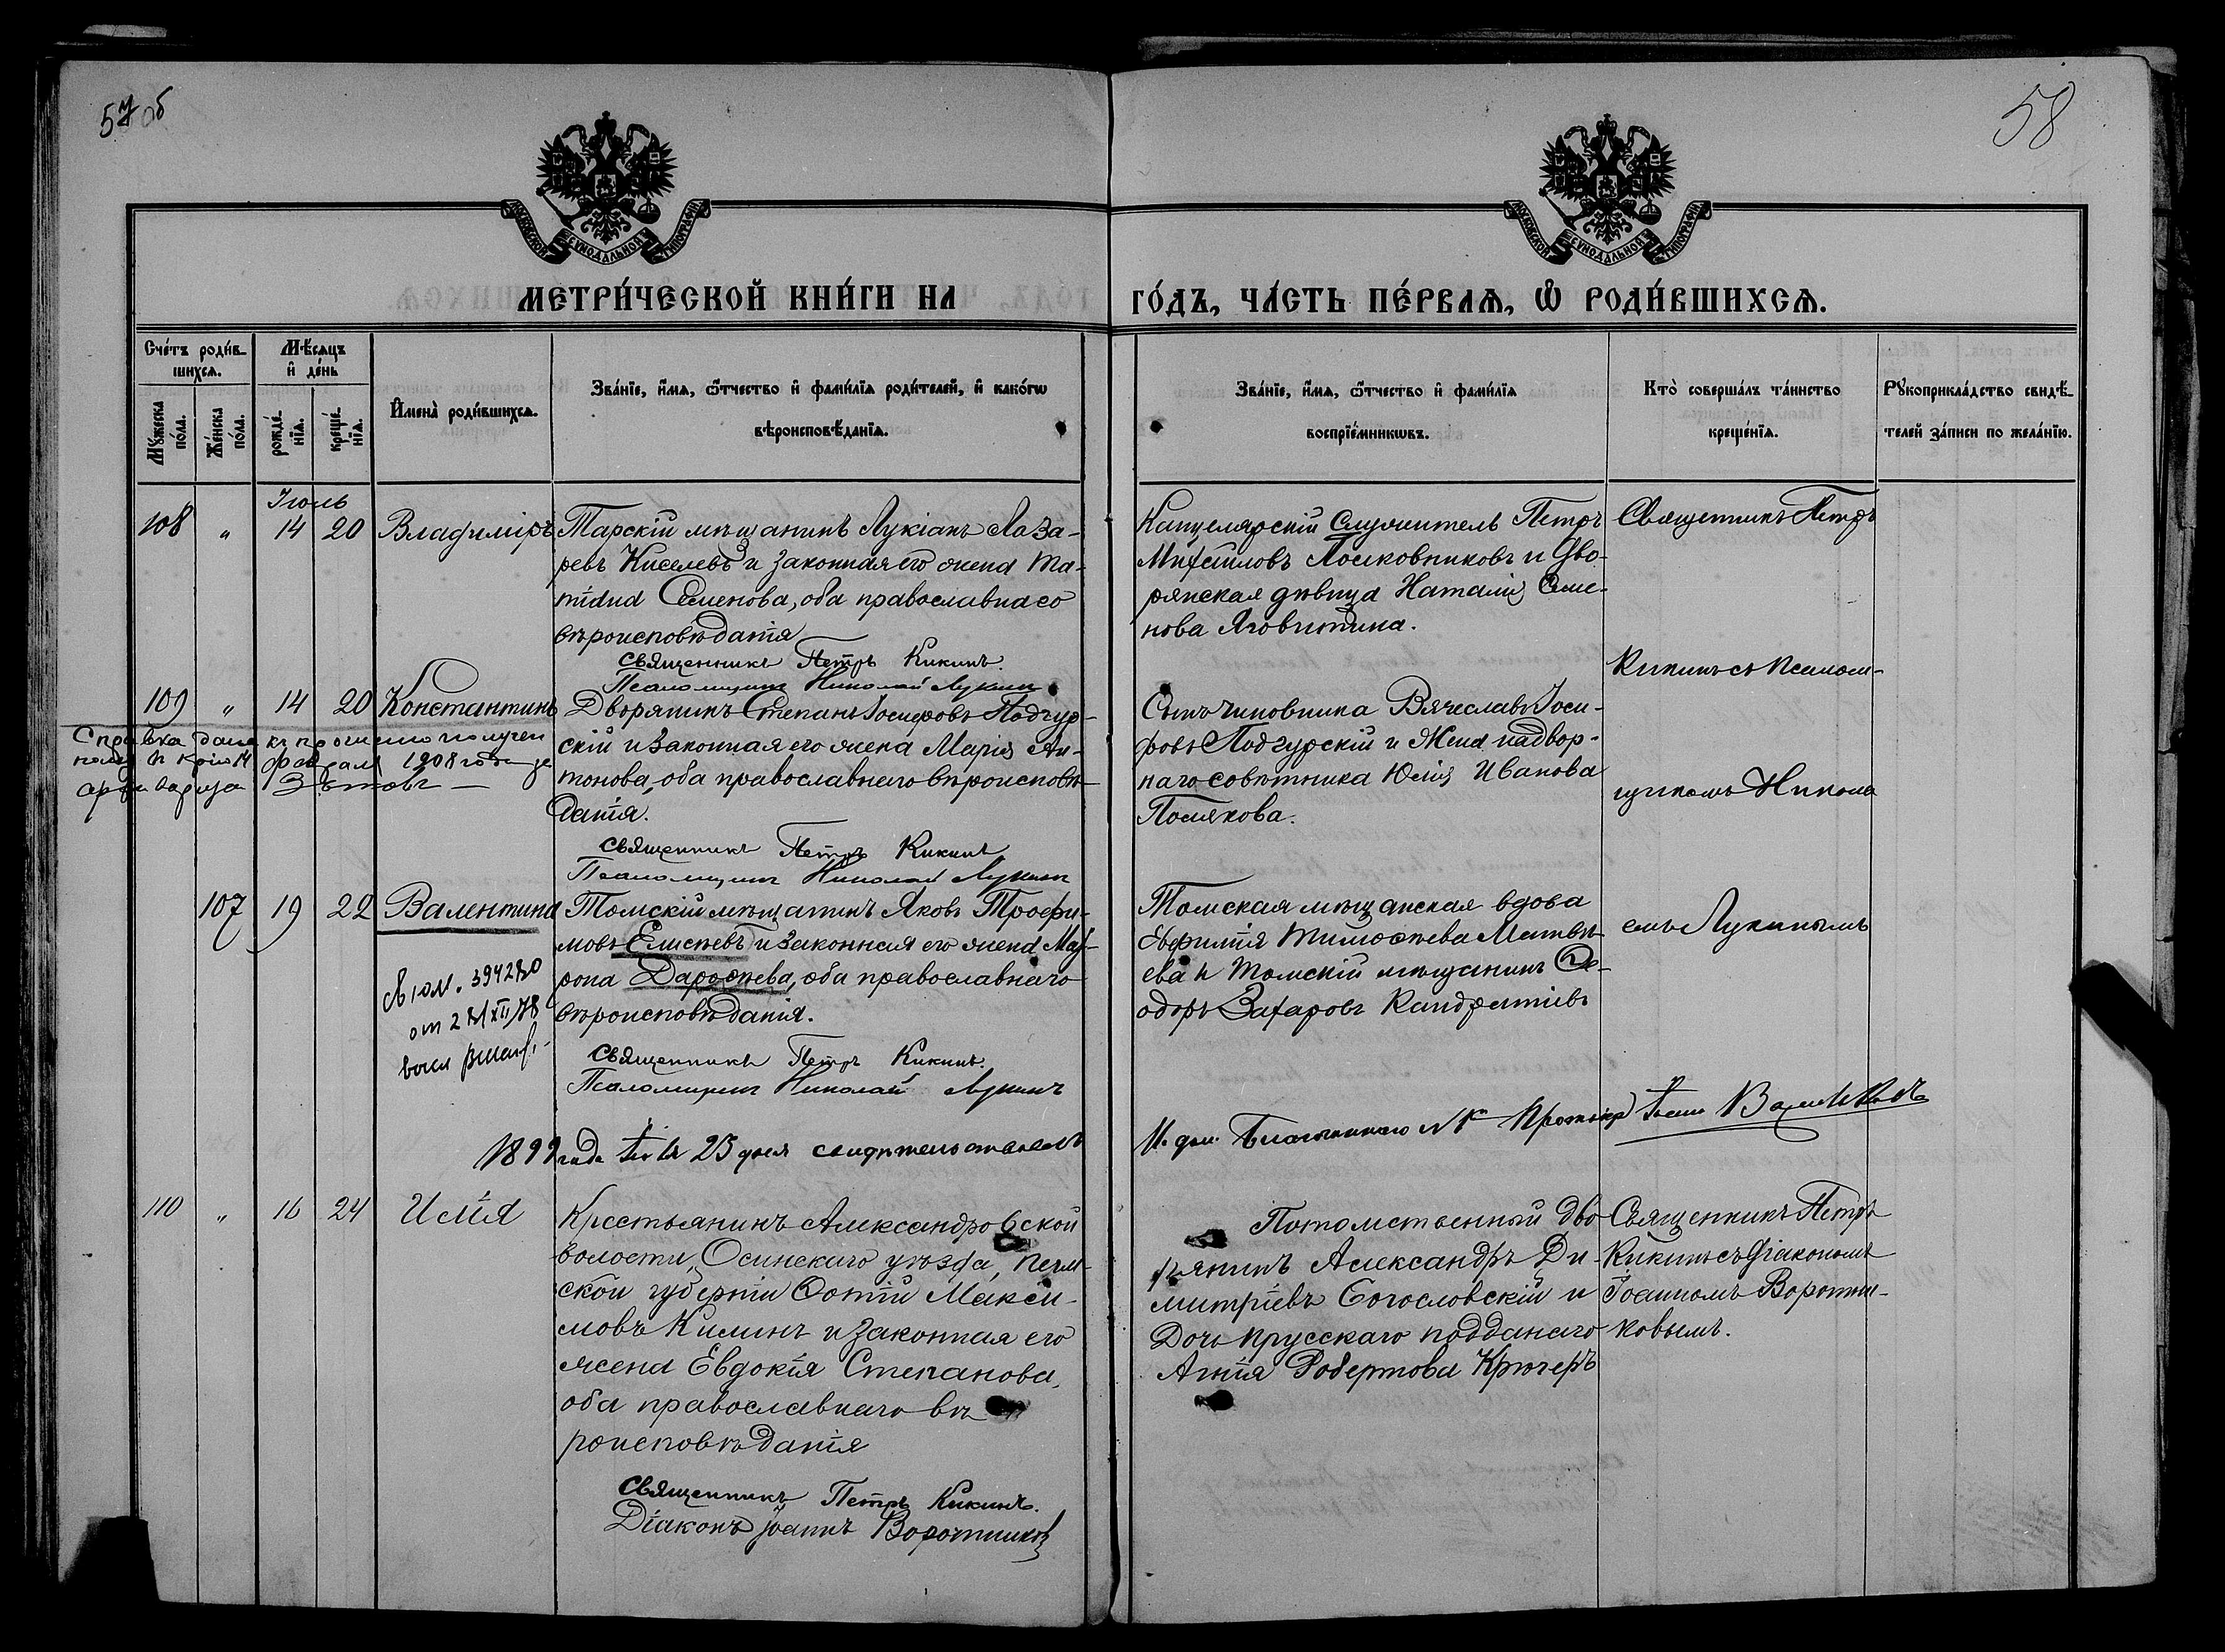 57 об
58
МОСКОВСКОЙ СѴНОДАЛЬНОЙ ТИПОГРАФІИ
МОСКОВСКОЙ СѴНОДАЛЬНОЙ ТИПОГРАФІИ
МЕТРИ́ЧЕСКОЙ КНИ́ГИ НА
ГО́ДЪ, ЧА́СТЬ ПЕ́РВАѦ, Ѽ РОДИ́ВШИХСѦ.
Сче́тъ роди́в-
шихсѧ.
Мꙋ́жеска
по́ла.
Же́нска
по́ла.
Мѣ́сѧцъ
и҆ де́нь
рожде́-
нїѧ.
креще́-
нїѧ.
И҆мена̀ роди́вшихсѧ.
Зва́нїе, и҆́мѧ, ѻ҆́тчество и҆ фами́лїѧ роди́телей, и҆ како́гѡ
вѣроисповѣ́данїѧ.
Зва́нїе, и҆́мѧ, ѻ҆́тчество и҆ фами́лїѧ
воспрїе́мникѡвъ.
Кто̀ соверша́лъ та́инство
креще́нїѧ.
Рꙋкоприкла́дство свидѣ́-
телей за́писи по жела́нїю.
Іюль
108 " 14 20 Владиміръ
Тарскій мѣщанинъ Лукіанъ Лаза-
ревъ Киселевъ и законная его жена Та-
тіана Семенова, оба православнаго
вѣроисповѣданія
Священникъ Петръ Кикинъ.
Псаломщикъ Николай Лукинъ
Канцелярскій Служитель Петръ
Михаиловъ Полковниковъ и Дво-
рянская дѣвица Наталія Семе-
нова Яговитина.
Священникъ Петръ
Кикинъ съ псалом-
щикомъ Никола
емъ Лукинымъ
109 " 14 20 Константинъ
Справка дана
февраля 1908 года за
Дворянинъ Степанъ Іосифовъ Подгур-
скій и законная его жена Марія Ан-
тонова, оба православнаго вѣроисповѣ-
данія.
Священникъ Петръ Кикинъ
Псаломщикъ Николай Лукинъ
Сынъ чиновника Вячеславъ Іоси-
фовъ Подгурскій и Жена надвор-
наго совѣтника Юлія Иванова
Полякова.
107 19 22 Валентина
394280
Томскій мѣщанинъ Яковъ Трофи-
мовъ Елисѣевъ и законная его жена Мат-
рона Дарофѣева, оба православнаго
вѣроисповѣданія.
Священникъ Петръ Кикинъ.
Псаломщикъ Николай Лукинъ
Томская мѣщанская вдова
Евфимія Тимофѣева Матвѣ-
ева и Томскій мѣщанинъ Ѳе-
одоръ Захаровъ Кандратіевъ
1899 года 23 дня свидѣтельствовалъ
И. дол. Благочиннаго № 1й Протоіер
110 " 16 24 Илія
Крестьянинъ Александровской
волости, Осинскаго уѣзда, Перм-
ской губерніи Фотій Макси-
мовъ Килинъ и законная его
жена Евдокія Степанова,
оба православнаго вѣ
роисповѣданія
Священникъ Петръ Кикинъ.
Діаконъ Іоаннъ Воротниковъ
Потомственный дво
рянинъ Александръ Ди-
митріевъ Богословскій и
Дочь прусскаго подданаго
Анна Робертова Крюгеръ
Священникъ Петръ
Кикинъ съ діакономъ
Іоанномъ Воротни-
ковымъ.